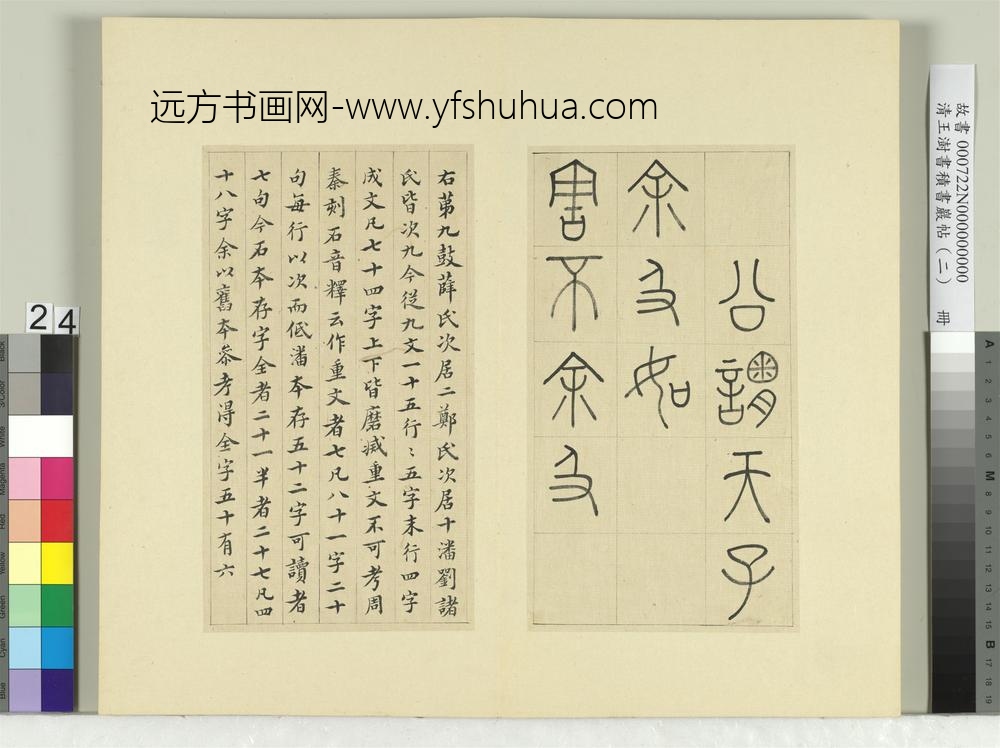 远方书画网-www.yfshuhua.com
公謂天子
余及如
害不余及
右苐九鼓薛氏次居二鄭氏次居十潘劉諸
氏皆次九今從九文一十五行〻五字末行四字
成文凡七十四字上下皆磨滅重文不可考周
秦刻石音釋云作重文者七凡八十一字二十
句每行以次而低潘本存五十二字可讀者
七句今石本存字全者二十一半者二十七凡四
十八字余以舊本叅考得全字五十有六
故書 000722N000000000
清王澍書積書巖帖（二） 冊
24
Black
3/Color
White
Magenta
Red
Yellow
Green
Cyan
Blue
A 1 2 3 4 5 6 M 8 9 10 11 12 13 14 15 B 17 18 19